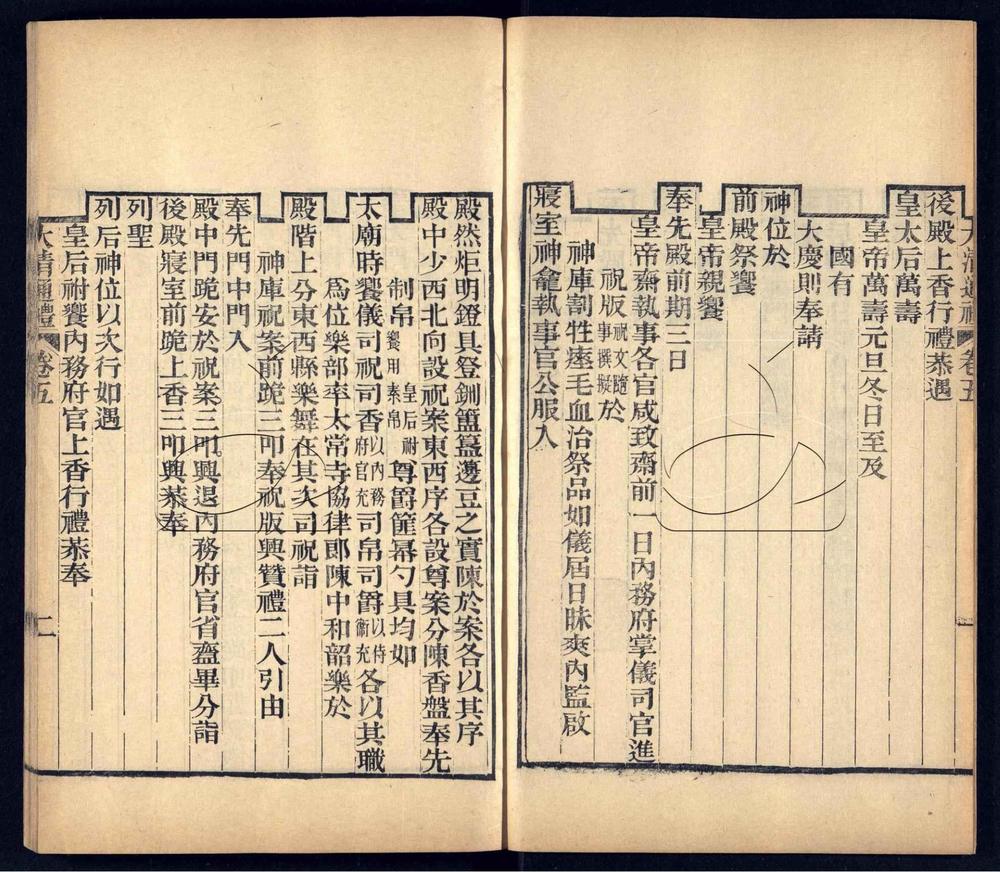 大清通禮 卷五 一
後殿上香行禮恭遇
皇太后萬壽
皇帝萬壽元旦冬日至及
國有
大慶則奉請
神位於
前殿祭饗
皇帝親饗
奉先殿前期三日
皇帝齋執事各官咸致齋前一日內務府掌儀司官進
祝版祝文隨事撰擬於
神庫割牲瘞毛血治祭品如儀屆日昧爽內監啟
寢室神龕執事官公服入
殿然炬明鐙具登鉶簠簋籩豆之實陳於案各以其序
殿中少西北向設祝案東西序各設尊案分陳香盤奉先
制帛皇后祔饗用素帛尊爵篚冪勺具均如
太廟時饗儀司祝司香以內務府官充司帛司爵以侍衞充各以其職
爲位樂部率太常寺協律郎陳中和韶樂於
殿階上分東西縣樂舞在其次司祝詣
神庫祝案前跪三叩奉祝版興贊禮二人引由
奉先門中門入
殿中門跪安於祝案三叩興退內務府官省齍畢分詣
後殿寢室前跪上香三叩興恭奉
列聖
列后神位以次行如遇
皇后祔饗內務府官上香行禮恭奉
大清通禮 卷五 二